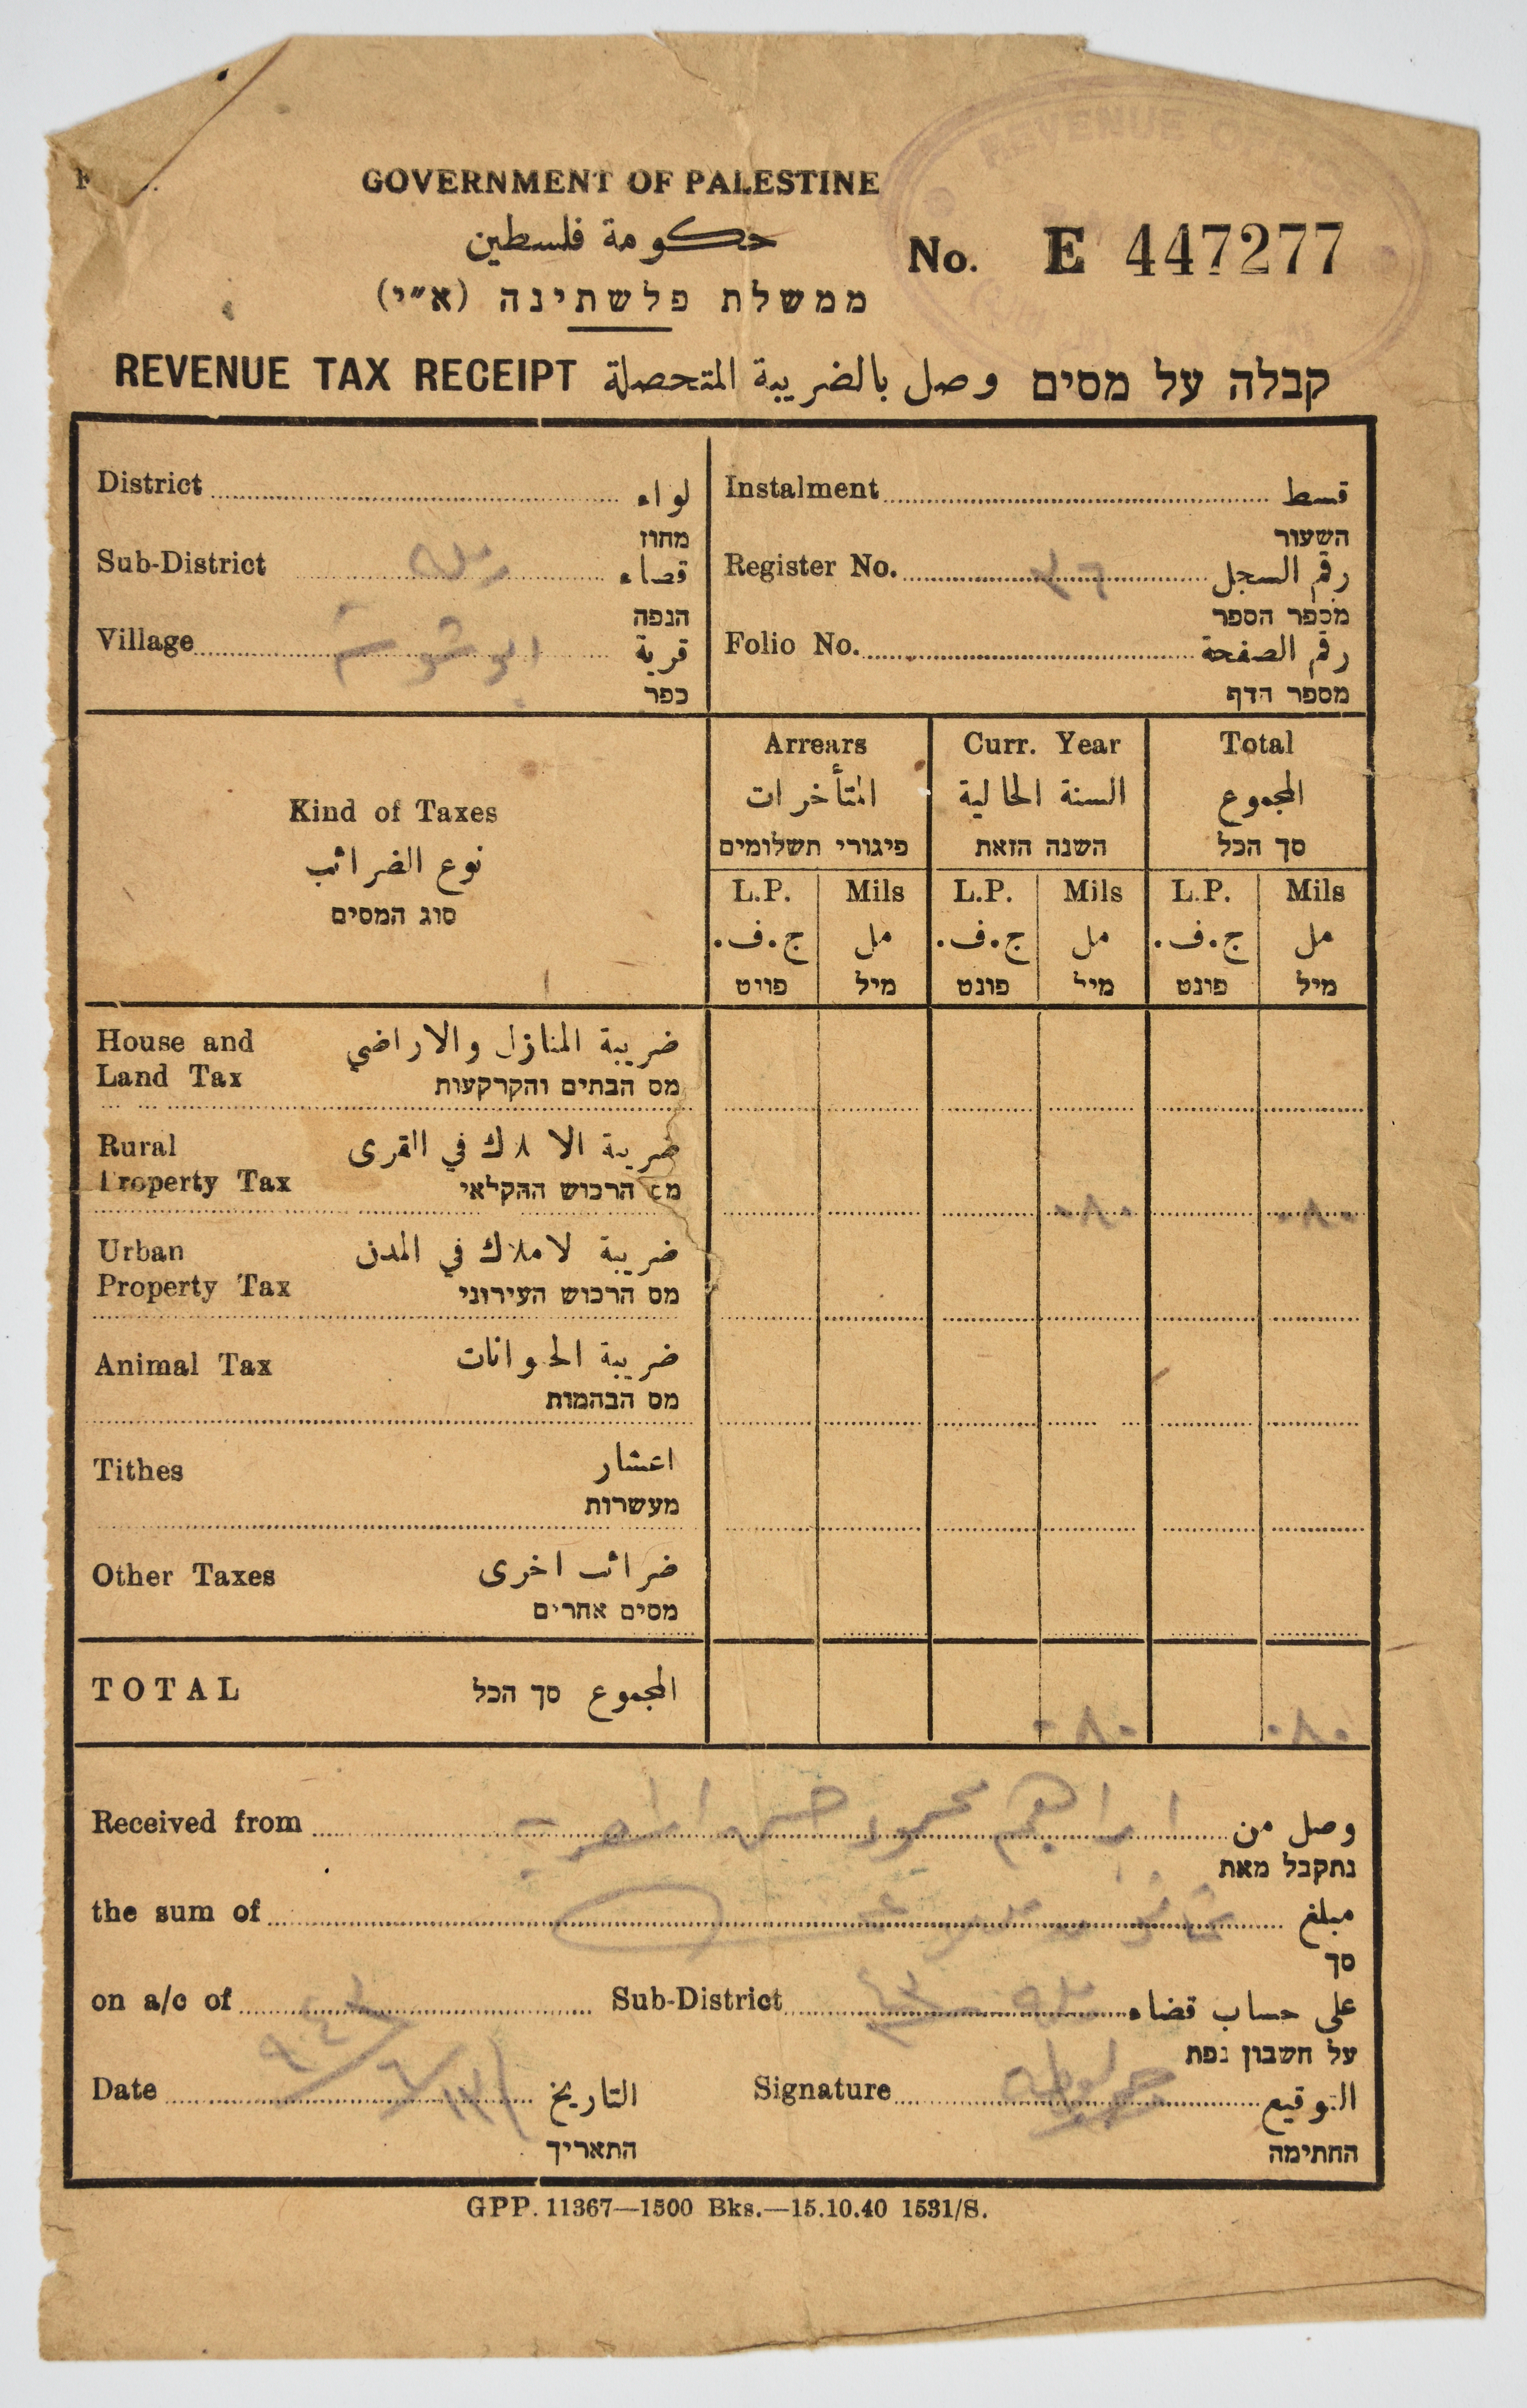 REVENUE OFF
GOVERNMENT OF PALESTINE
حكومة فلسطين
No. E 447277
ממשלת פלשתינה (א״י)
REVENUE TAX RECEIPT وصل بالضريبة المتحصلة קבלה על מסים
District لواء
מחוז
Sub-District رملة قضاء
הנפה
Village ابو شوشة قرية
כפר
Instalment قسط
השעור
Register No. رقم السجل
מספר הספר
Folio No. رقم الصفحة
מספר הדף
Kind of Taxes
نوع الضرائب
סוג המסים
Arrears
المتأخرات
פיגורי תשלומים
Curr. Year
السنة الحالية
השנה הזאת
Total
المجموع
סך הכל
L.P. Mils L.P. Mils L.P. Mils
ج.ف. مل ج.ف. مل ج.ف. مل
פונט מיל פונט מיל פונט מיל
House and ضريبة المنازل والاراضي
Land Tax מס הבתים והקרקעות
Rural ضريبة الاملاك في القرى
Property Tax מס הרכוש החקלאי
٠٨٠ ٠٨٠
Urban ضريبة لاملاك في المدن
Property Tax מס הרכוש העירוני
Animal Tax ضريبة الحيوانات
מס הבהמות
Tithes اعشار
מעשרות
Other Taxes ضرائب اخرى
מסים אחרים
TOTAL סך הכל المجموع
٠٨٠ ٠٨٠
Received from ابراهيم محمود حسن وصل من
נתקבל מאת
the sum of مبلغ
סך
on a/c of Sub-District رملة على حساب قضاء
על חשבון נפת
Date التاريخ
התאריך
Signature التوقيع
החתימה
GPP. 11367—1500 Bks.—15.10.40 1531/S.